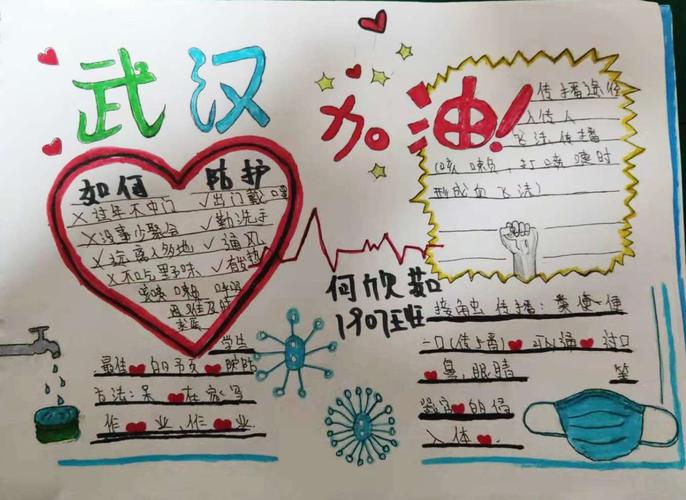 武汉
加油!
如何 防护
×过年不出门 ✓出门戴口罩
×没事少聚会 ✓勤洗手
×远离人多地 ✓通风
×不吃野味 ✓有发热
咳嗽
及时
传播途径
人传人
飞沫传播
(咳嗽、打喷嚏时
形成的飞沫)
何欣茹
1907班
接触传播:粪便-便
-口(传播)可以通过口
鼻、眼睛等
器官的侵
入体
学生
最佳的预防
方法:呆在家写
作业、作业